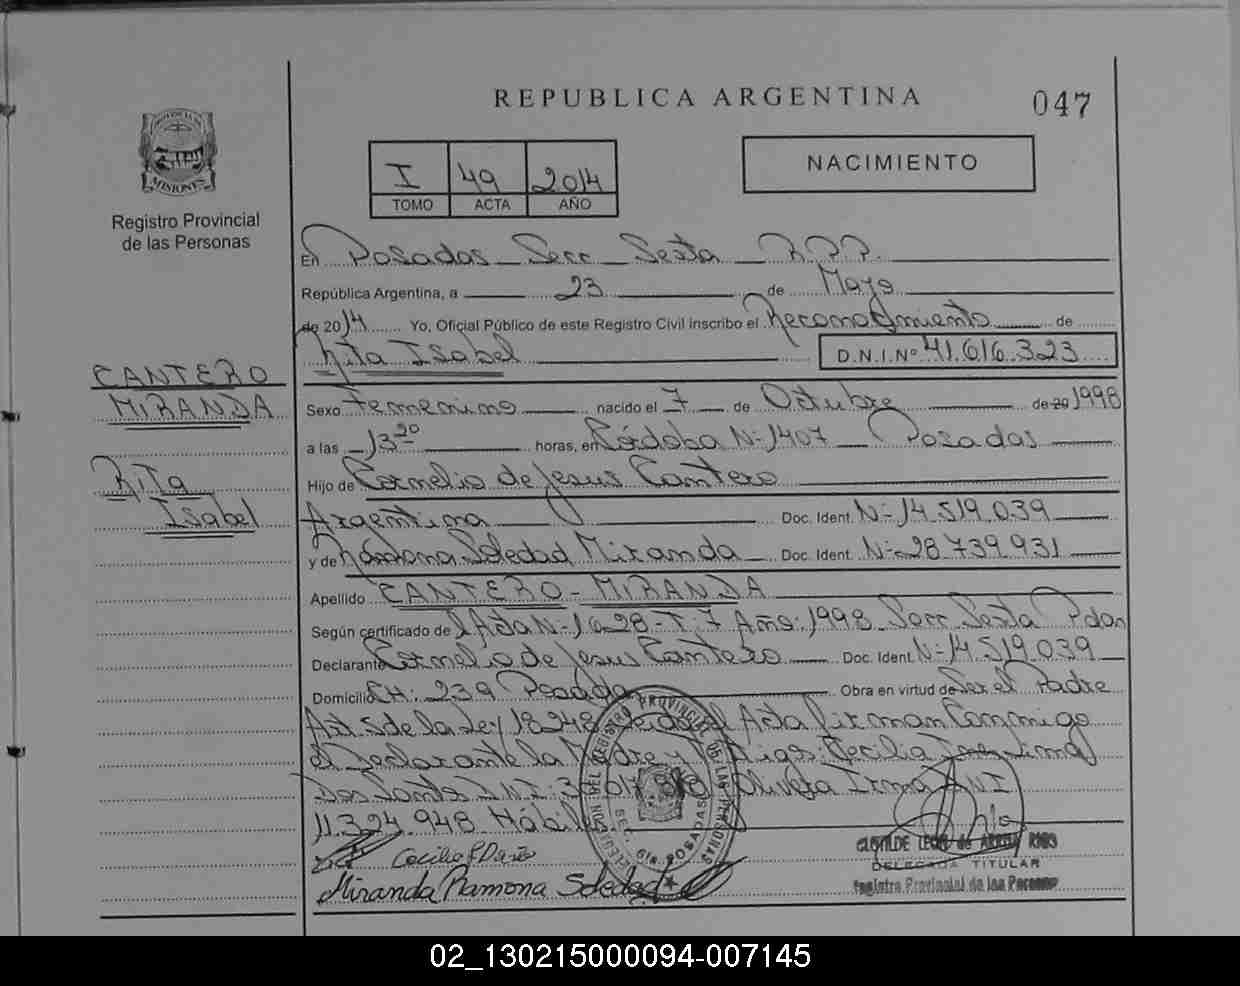 REPUBLICA ARGENTINA
047
PROVINCIA DE
MISIONES
Registro Provincial
de las Personas
I 49 2014
TOMO ACTA AÑO
NACIMIENTO
En Posadas Secc Sexta R.P.P.
República Argentina, a 23 de Mayo
de 2014 Yo, Oficial Público de este Registro Civil inscribo el Reconocimiento de
Rita Isabel D.N.I. Nº 41.616.323
CANTERO
MIRANDA
Rita
Isabel
Sexo Femenino nacido el 7 de Octubre de 20 1998
a las 13 20 horas, en Córdoba Nº 1407 Posadas
Hijo de Cornelio de Jesus Cantero
Argentina Doc. Ident. Nº 14.519.039
y de Ramona Soledad Miranda Doc. Ident. Nº 28.739.931
Apellido CANTERO - MIRANDA
Según certificado de Acta Nº 1628 - T: 7 Año: 1998 Secc Sexta Pdas
Declarante Cornelio de Jesus Cantero Doc. Ident. Nº 14.519.039
Domicilio CH: 239 Posadas Obra en virtud de Ser el Padre
Art. 5 de la Ley 18.248 Leida el Acta firman Conmigo
el Declarante la Madre y Tgos: Cecilia
Dos Santos D.N.I: Olivera Irma D.N.I
11.324.948 Hábiles
Cecilia
Miranda Ramona Soledad
REGISTRO PROVINCIAL DE LAS PERSONAS
SEC. 6ta. POSADAS
CLOTILDE
DELEGADA TITULAR
Registro Provincial de las Personas
02_130215000094-007145